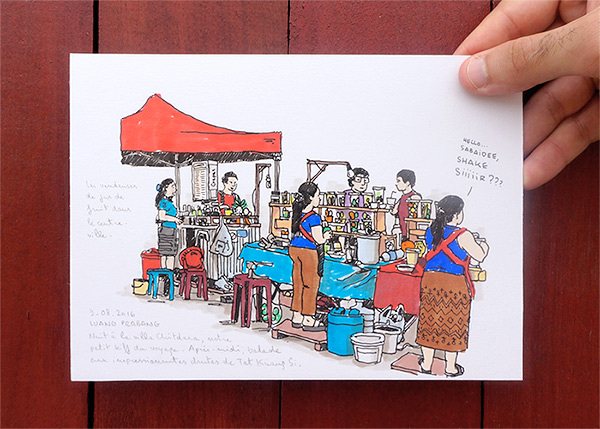 Les vendeuses de jus de
fruit dans
le centre
ville.
HELLO...
SABAIDEE,
SHAKE
Siiiiir???
3.08.2016
LUANG PRABANG
Nuit à la villa Chitdara, notre
petit kiff du voyage. Après-midi, balade
aux impressionnantes chutes de Tat Kuang Si.